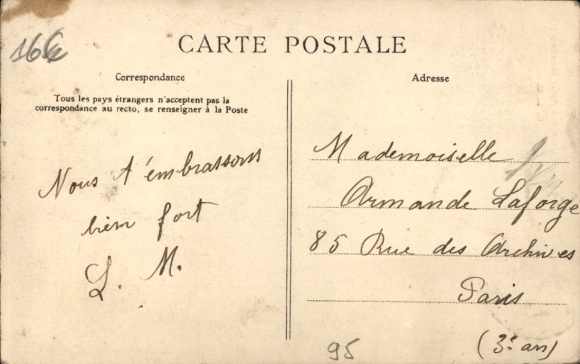 166
CARTE POSTALE
Correspondance
Tous les pays étrangers n'acceptent pas la
correspondance au recto, se renseigner à la Poste
Nous t'embrassons
bien fort
L. M.
Adresse
Mademoiselle
Armande Laforge
85 Rue des Archives
Paris
(3e arr)
95